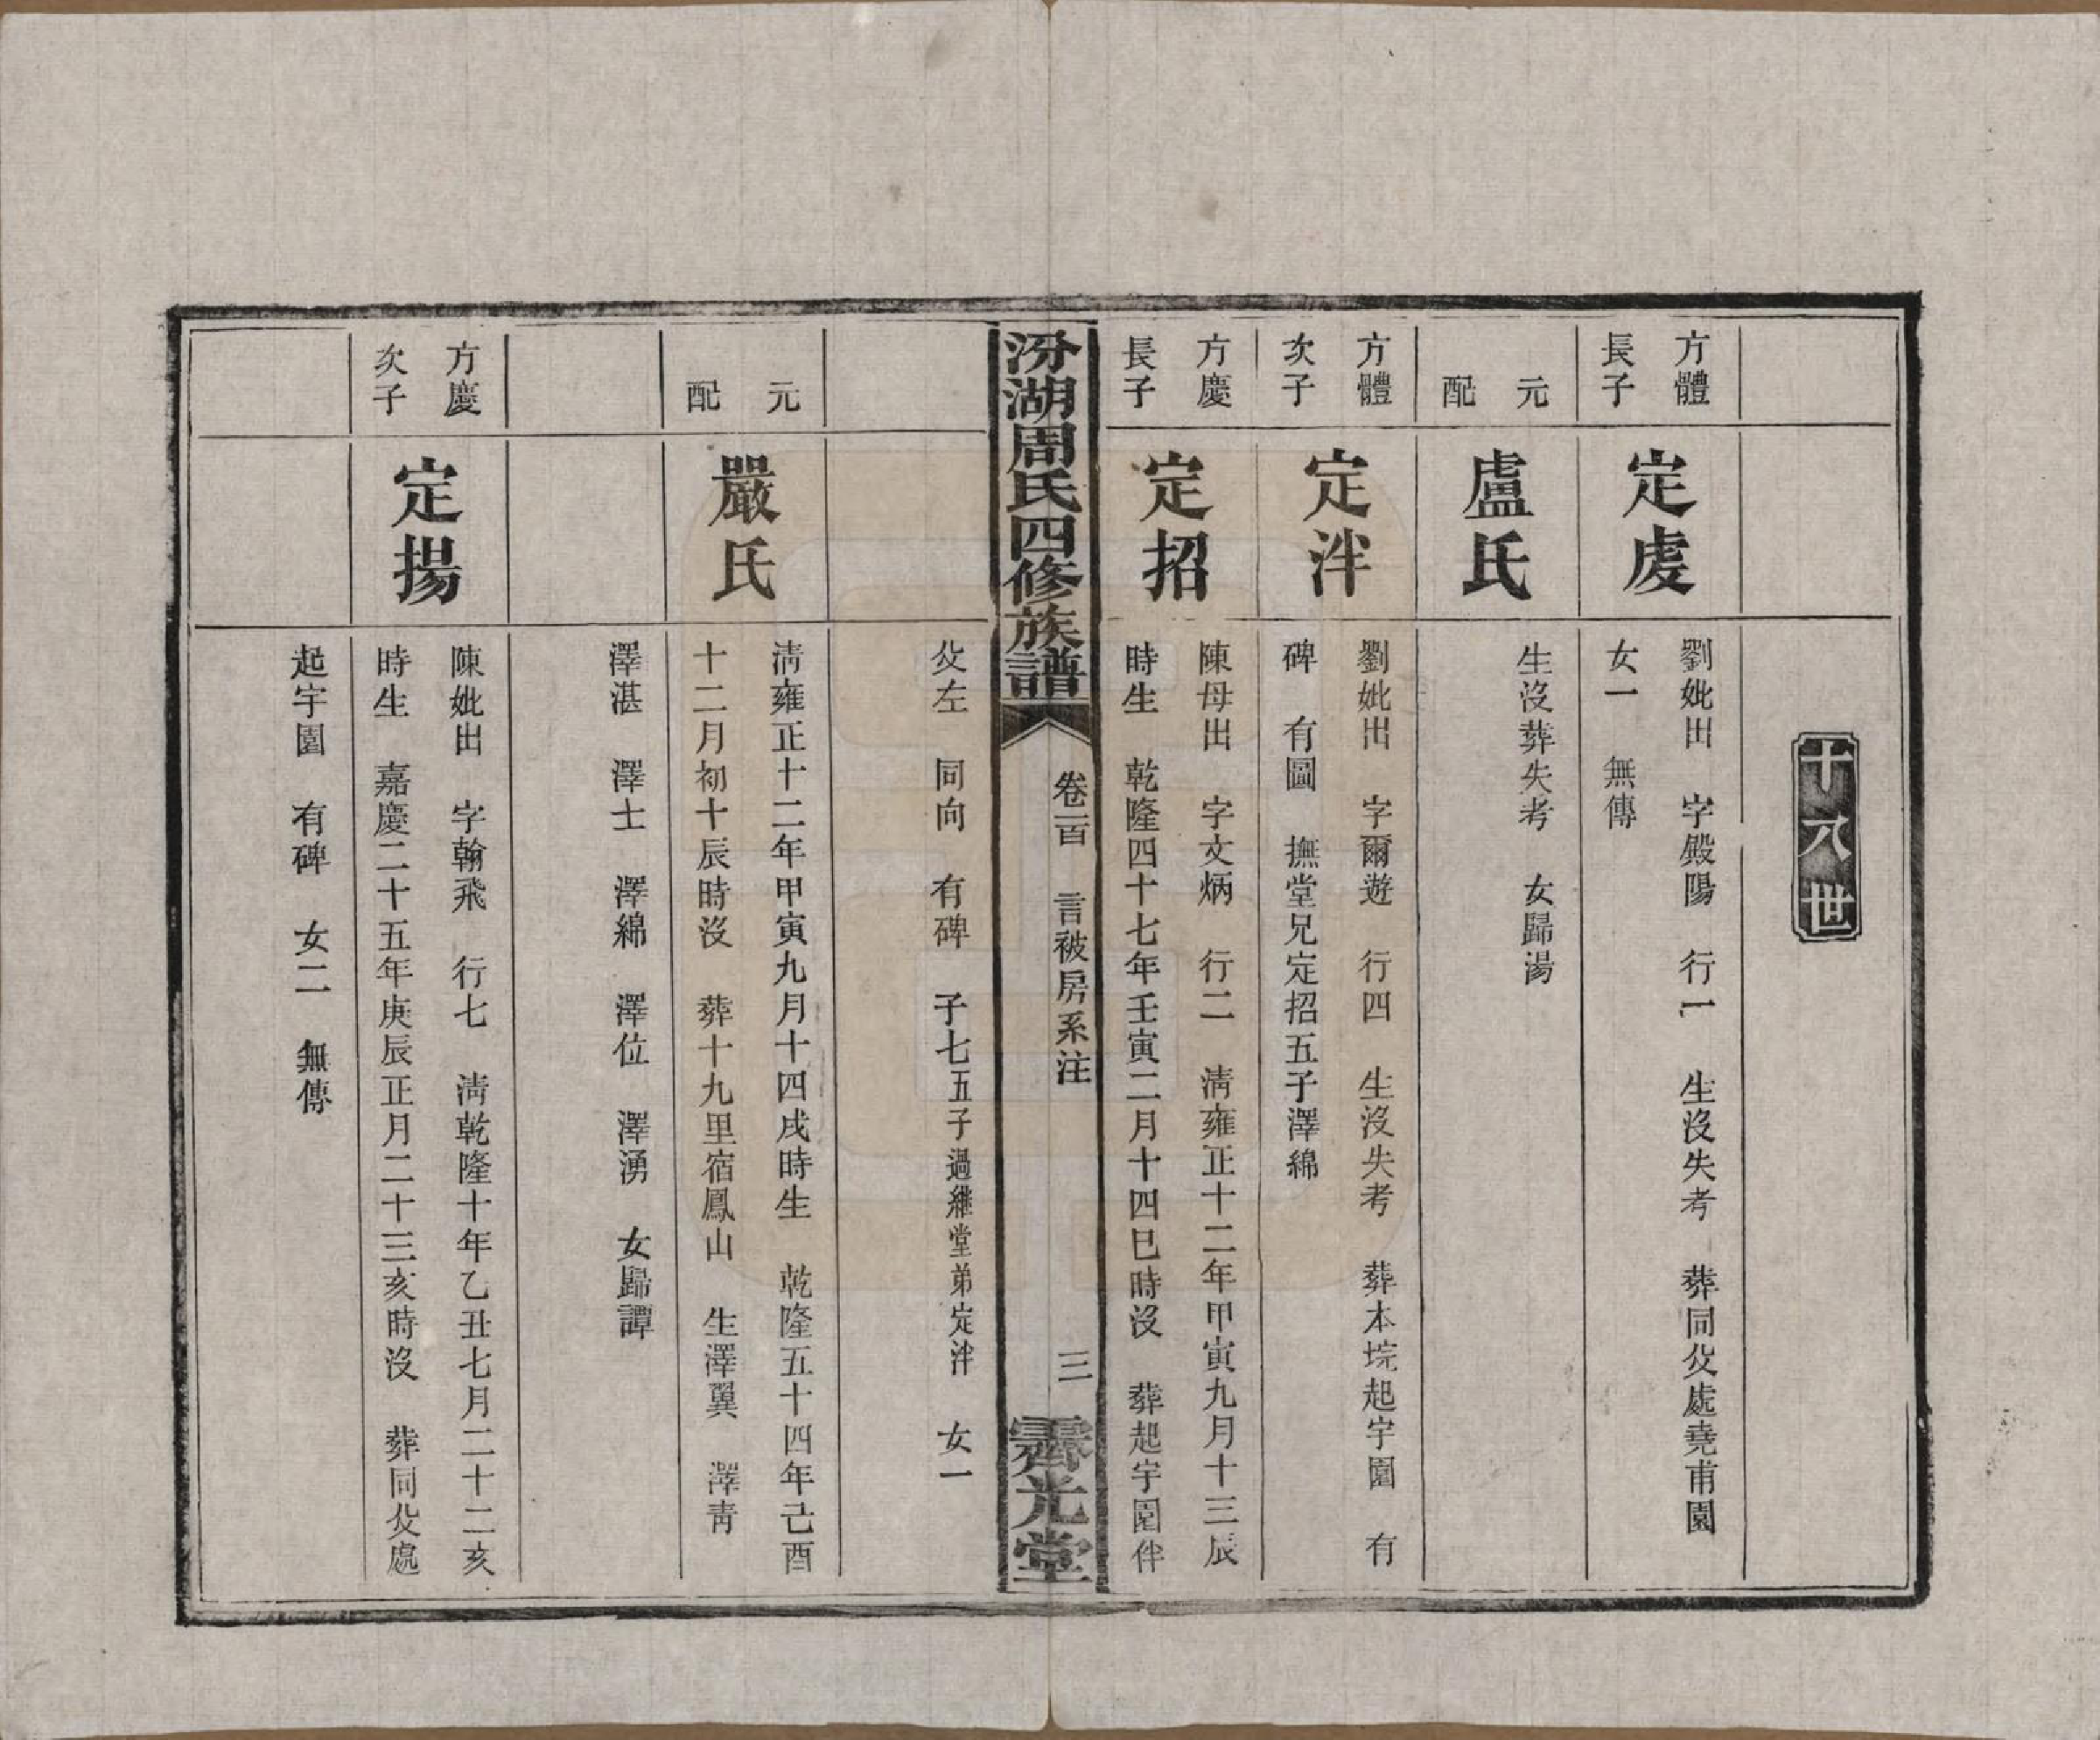 十八世
方體
長子
定虔
劉妣出　字殿陽　行一　生沒失考　葬同父處堯甫園
女一　無傳
元
配
盧氏
生沒葬失考　女歸湯
方體
次子
定泮
劉妣出　字爾遊　行四　生沒失考　葬本垸起宇園　有
碑　有圖　撫堂兄定招五子澤綿
方慶
長子
定招
陳母出　字文炳　行二　清雍正十二年甲寅九月十三辰
時生　乾隆四十七年壬寅二月十四巳時沒　葬起宇園伴
汾湖周氏四修族譜
卷一百　言被房系注
三
霽光堂
父左　同向　有碑　子七五子過繼堂弟定泮　女一
元
配
嚴氏
清雍正十二年甲寅九月十四戌時生　乾隆五十四年己酉
十二月初十辰時沒　葬十九里宿鳳山　生澤翼　澤靑
澤湛　澤士　澤綿　澤位　澤湧　女歸譚
方慶
次子
定揚
陳妣出　字翰飛　行七　清乾隆十年乙丑七月二十二亥
時生　嘉慶二十五年庚辰正月二十三亥時沒　葬同父處
起宇園　有碑　女二　無傳